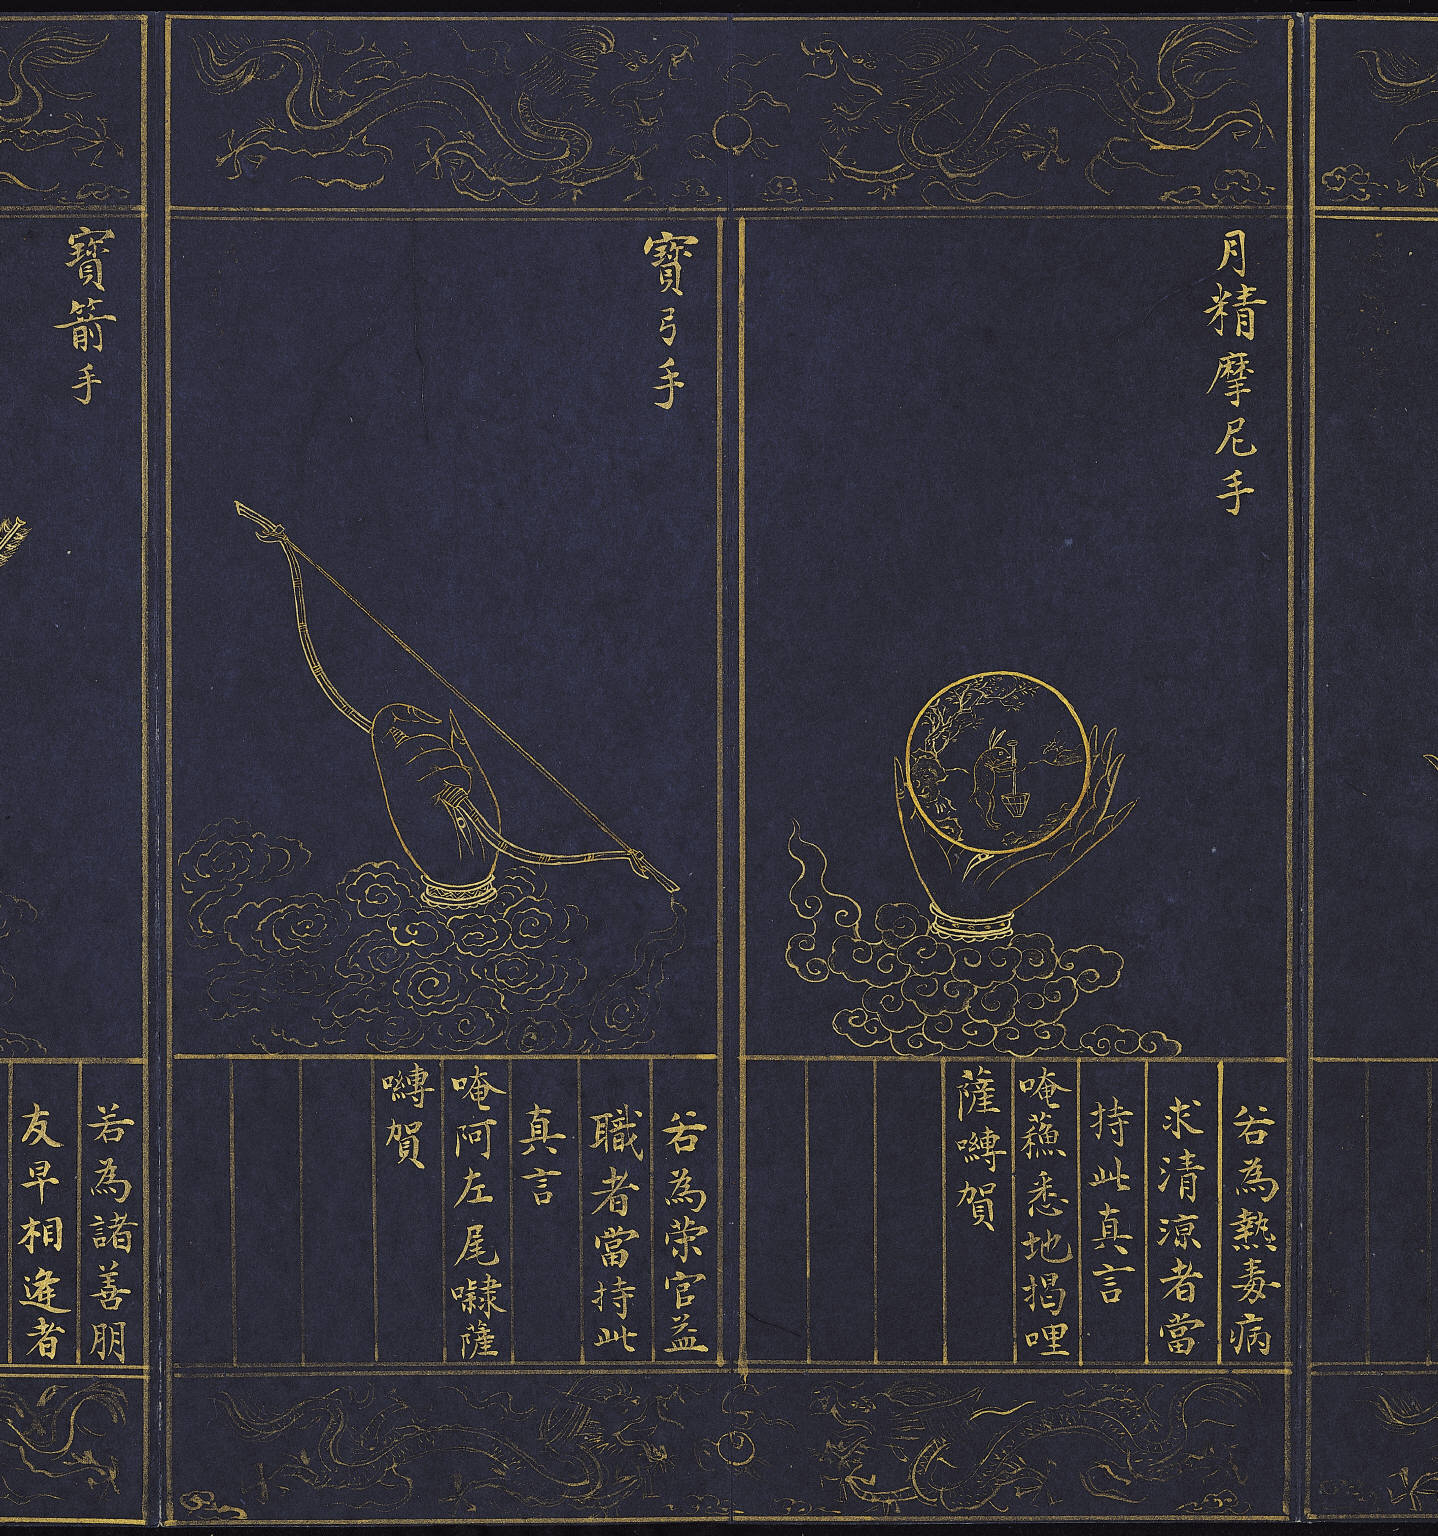 月精摩尼手
若為熱毒病
求清涼者當
持此真言
唵蘓悉地揭哩
薩嚩賀
寶弓手
若為荣官益
職者當持此
真言
唵阿左尾㘑薩
嚩賀
寶箭手
若為諸善朋
友早相逢者